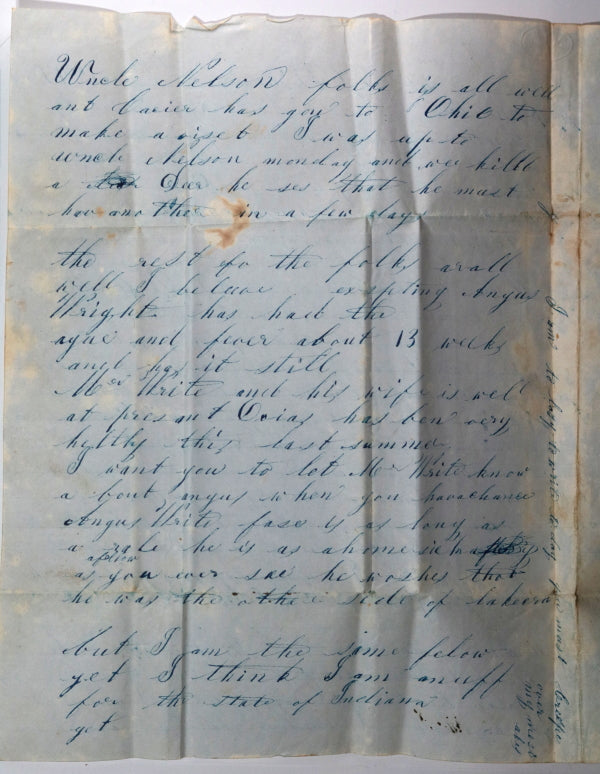 Uncle Nelson folks is all well
ant Cacier has gon to Ohio to
make a viset I was up to
uncle Nelson monday and we killd
a Deer he ses that he must
hav another in a few days
the rest fo the folks arall
well I beleave exspting Angus
Wright has had the
ague and fever about 13 weeks
and has it still
Mr Write and his wife is well
at presant has ben very
helthy this last summer
I want you to let Mr Write know
a bout angus when you havachance
Angus Write fase is as long as
a rale he is as a homesick
a felow
as you ever see he woshes that
he was the othere side of lake
but I am the same felow
yet I think I am anuff
for the state of Indiana
yet
I aint to day